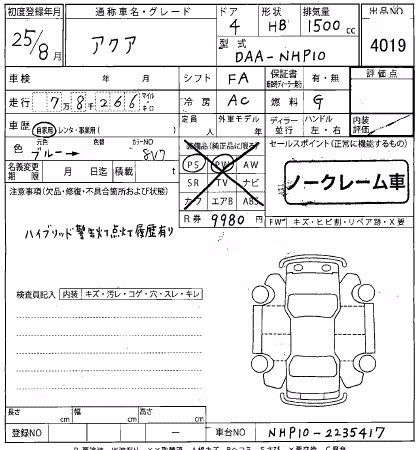 初度登録年月 通称車名・グレード ドア 形状 排気量 出品NO
25/8月 アクア 4 HB 1500cc 4019
型式 DAA-NHP10
車検 年 月 シフト FA 保証書 有・無 評価点
走行 7万8千266 マイル キロ 冷房 AC 燃料 G
車歴 自家用 レンタ・事業用( ) 定員 人 外車モデル 年 ディーラー 並行 ハンドル 左・右 内装評価
色 元色 ブルー 色替 カラーNO 8V7 装備品(純正品に限る) セールスポイント(正常に機能するもの)
PS PW AW
名義変更期限 月 日 積載 t SR TV ナビ ノークレーム車
注意事項(欠品・修復・不具合箇所および状態) カワ エアB ABS
R券 9980円 FW キズ・ヒビ割・リペア跡・X要
ハイブリッド警告灯点灯履歴有り
検査員記入 内装 キズ・汚レ・コゲ・穴・スレ・キレ
長さ cm 幅 cm 高さ cm
登録NO — 車台NO NHP10-2235417